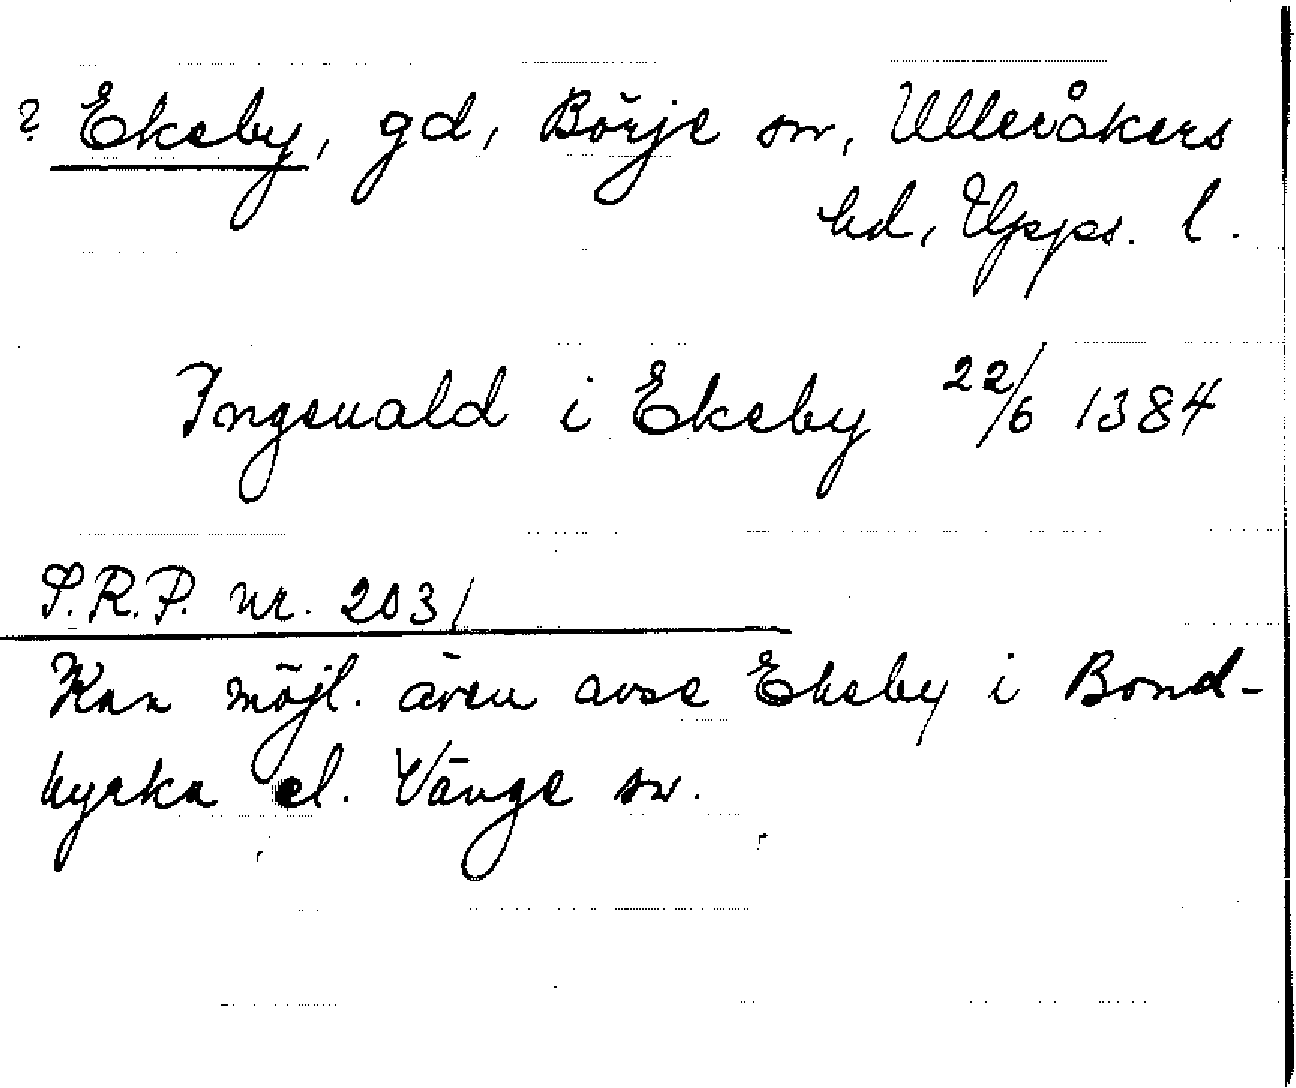 ? Ekeby, gd, Börje sn, Ulleråkers
hd, Upps. l.
Ingeuald i Ekeby 22/6 1384
S.R.P. nr. 2031
Kan möjl. även avse Ekeby i Bond-
kyrka el. Vänge sn.